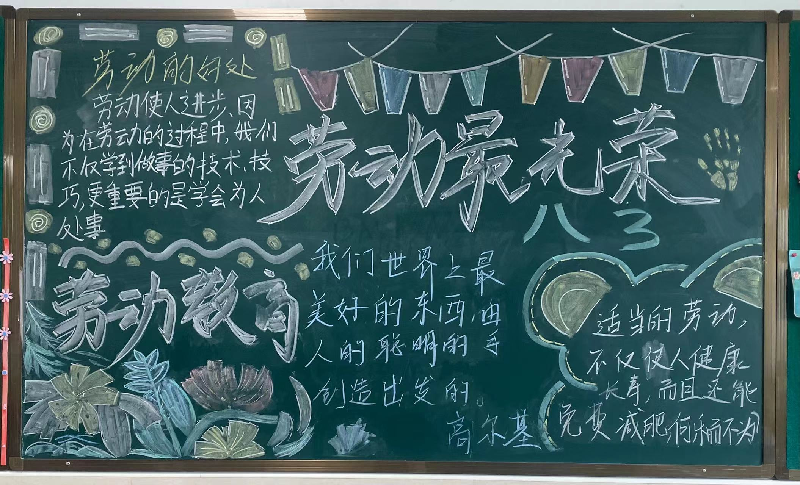 劳动的好处
劳动使人进步,因
为在劳动的过程中,我们
不仅学到做事的技术、技
巧,更重要的是学会为人
处事
劳动最光荣
八3
劳动教育
我们世界上最
美好的东西,由
人的聪明的手
创造出发的。
高尔基
适当的劳动,
不仅使人健康
长寿,而且还能
免费减肥,何乐而不为